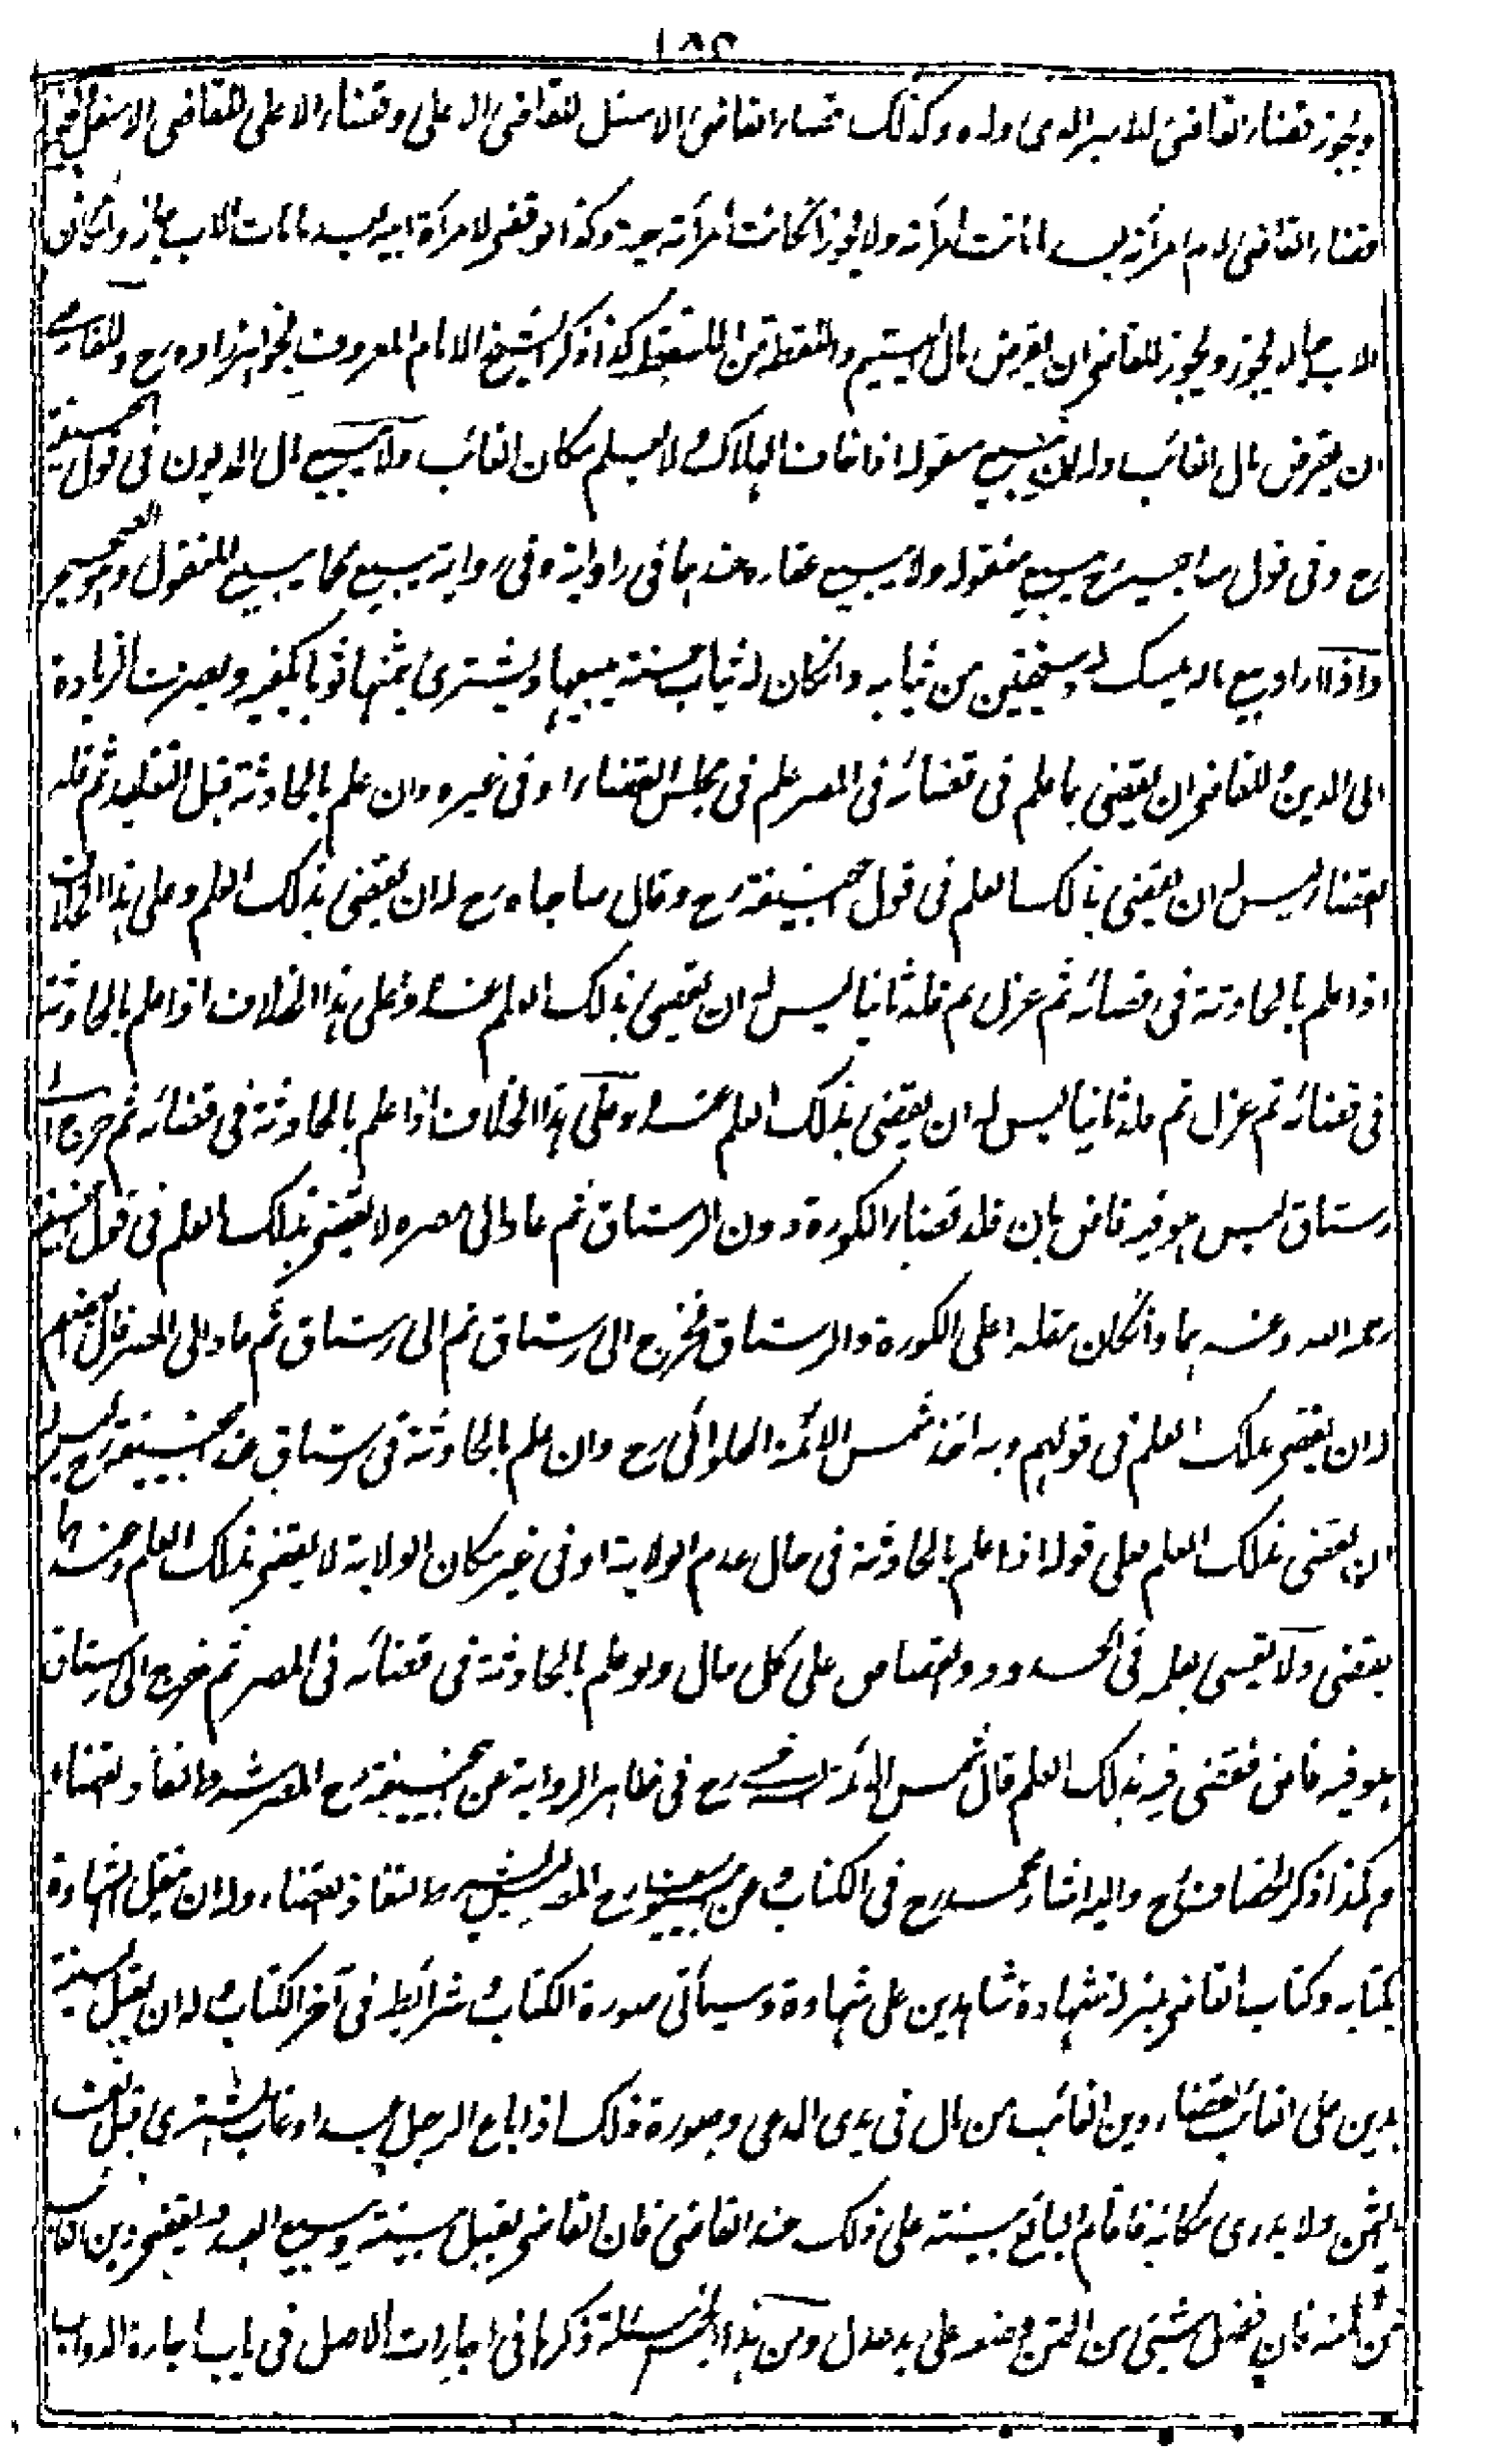 ويجوز قضاء القاضى للامير الذى ولاه وكذلك قضاء القاضى الاسفل للقاضى الاعلى وقضاء الاعلى للقاضى الاسفل
قضاء القاضى لام امرأته بعد ما ماتت امرأته ولا يجوز انكانت امرأته حية وكذا لو قضى لامرأة ابيه بعد ما مات الاب جاز وانكان
الاب حيا لا يجوز ويجوز للقاضى ان يقرض مال اليتيم واللقطة من الملتقط كذا ذكر الشيخ الامام المعروف بخواهرزاده رح وللقاضى
ان يقرض مال الغائب وله ان يبيع منقوله اذا خاف الهلاك ولا يعلم مكان الغائب ولا يبيع مال المديون فى قول ابيحنيفة
رح وفى قول صاحبيه رح يبيع منقوله ولا يبيع عقاره عندهما فى رواية وفى رواية يبيع كما يبيع المنقول وهو الصحيح
واذا اراد بيع ماله يمسك له دستجتين من ثيابه وانكان له ثياب حسنة يبيعها ويشترى بثمنها ثوبا يكفيه ويصرف الزيادة
الى الدين للقاضى ان يقضى بما علم فى قضائه فى المصر علم فى مجلس القضاء او فى غيره وان علم بالحادثة قبل التقليد ثم قلد
القضاء ليس له ان يقضى بذلك العلم فى قول ابيحنيفة رح وقال صاحباه رح له ان يقضى بذلك العلم وعلى هذا الخلاف
اذا علم بالحادثة فى قضائه ثم عزل ثم قلد ثانيا ليس له ان يقضى بذلك العلم عنده وعلى هذا الخلاف اذا علم بالحادثة
فى قضائه ثم عزل ثم قلد ثانيا ليس له ان يقضى بذلك العلم عنده وعلى هذا الخلاف اذا علم بالحادثة فى قضائه ثم خرج الى
رستاق ليس هو فيه قاض بان قلد قضاء الكورة دون الرستاق ثم عاد الى مصره لا يقضى بذلك العلم فى قول ابيحنيفة
رحمه الله وعندهما وانكان مقلدا على الكورة والرستاق فخرج الى رستاق ثم الى رستاق ثم عاد الى المصر قال بعضهم
له ان يقضى بذلك العلم فى قولهم وبه اخذ شمس الائمة الحلوائى رح وان علم بالحادثة فى رستاق عند ابيحنيفة رح ليس له
ان يقضى بذلك العلم فعلى قوله اذا علم بالحادثة فى حال عدم الولاية او فى غير مكان الولاية لا يقضى بذلك العلم وعندهما
يقضى ولا يقضى بعلمه فى الحدود والقصاص على كل حال ولو علم بالحادثة فى قضائه فى المصر ثم خرج الى رستاق
هو فيه قاض فقضى فيه بذلك العلم قال شمس الائمة السرخسى رح فى ظاهر الرواية عن ابيحنيفة رح المصر شرط لنفاذ القضاء
وهكذا ذكر الخصاف رح واليه اشار محمد رح فى الكتاب وعن ابى يوسف رح المصر ليس بشرط لنفاذ القضاء وله ان يقبل الشهادة
بكتابه وكتاب القاضى بمنزلة شهادة شاهدين على شهادة وسيأتى صورة الكتاب وشرائط فى آخر الكتاب وله ان يقبل البينة
بدين على الغائب لقضاء دين الغائب من مال فى يدى المدعى وصورة ذلك اذا باع الرجل عبدا وغاب المشترى قبل نقد
الثمن ولا يدرى مكانه فاقام البائع بينته على ذلك عند القاضى فان القاضى يقبل بينته ويبيع العبد ويقضى دين الغائب
من ثمنه فان فضل شيئ من الثمن وضعه على يد عدل ومن هذا الجنس مسئلة ذكرها فى اجارات الاصل فى باب اجارة الدواب